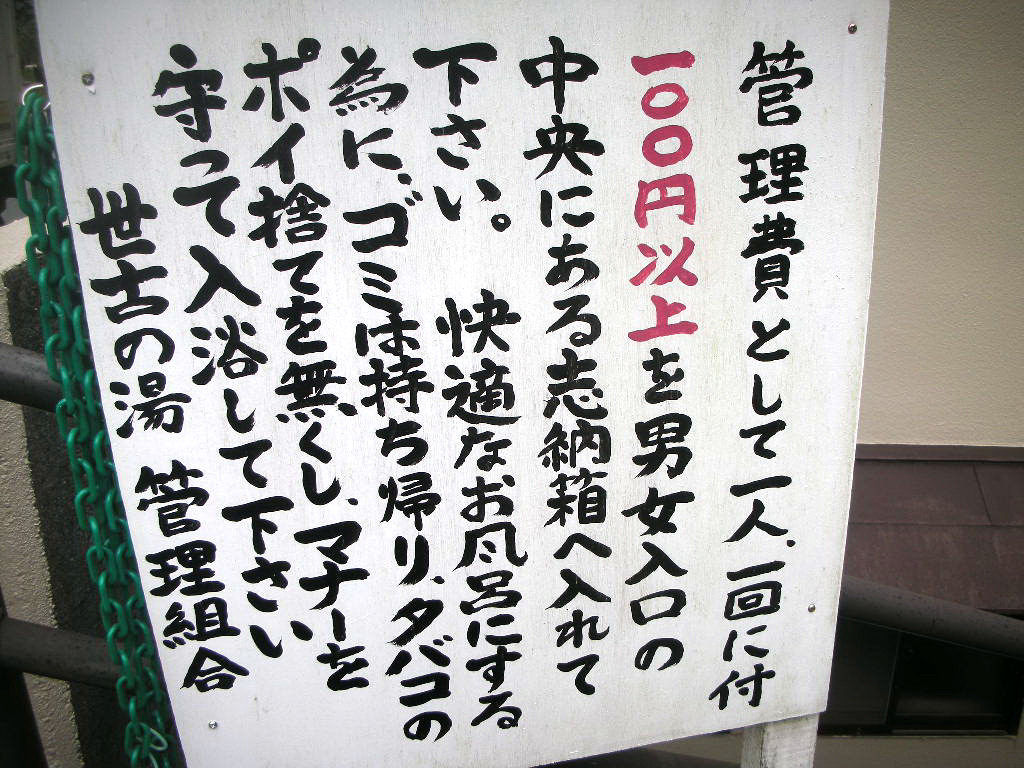 管理費として一人、一回に付
一〇〇円以上を男女入口の
中央にある志納箱へ入れて
下さい。 快適なお風呂にする
為に、ゴミは持ち帰り、タバコの
ポイ捨てを無くし、マナーを
守って入浴して下さい
世古の湯 管理組合